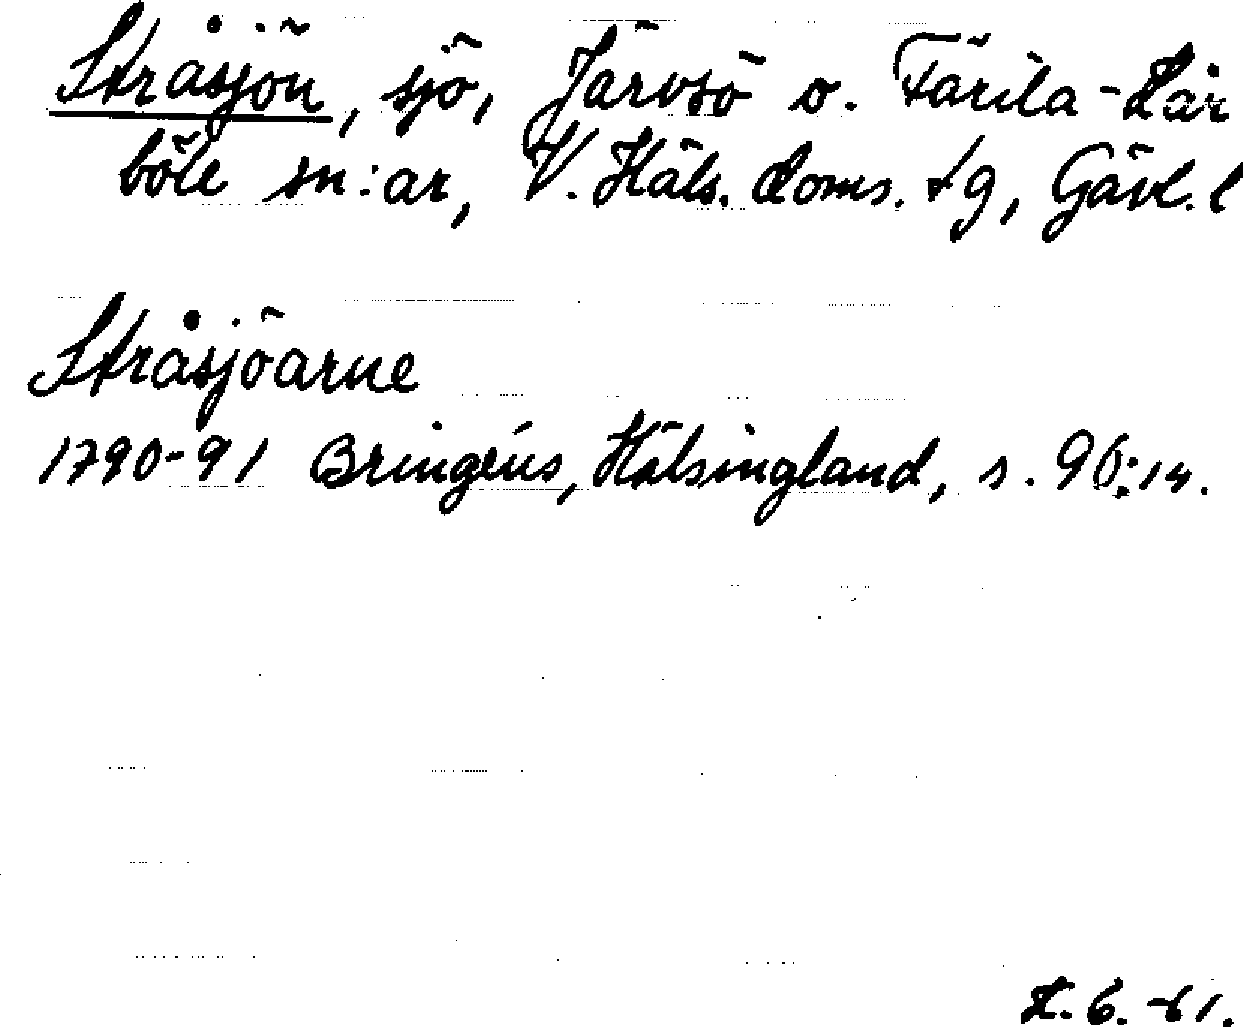 Stråsjön, sjö, Järvsö o. Färila-Kår
böle sn:ar, V. Häls. doms. tg, Gävl. l
Stråsjöarne
1790-91 Bringéus, Hälsingland, s. 96:14.
K. G. -61.